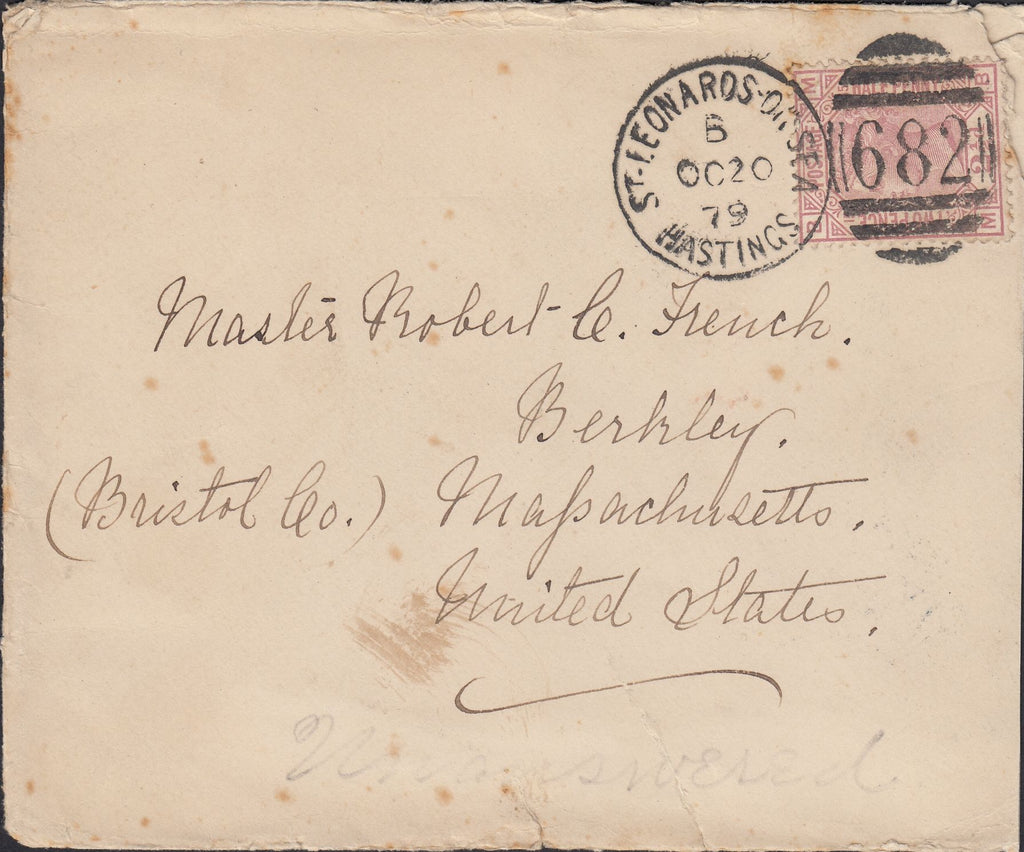 ST. LEONARDS-ON-SEA
B
OC20
79
HASTINGS
682
HALF PENNY
TWO PENCE
Master Robert C. French.
Berkley.
(Bristol Co.) Massachusetts.
United States.
Unanswered